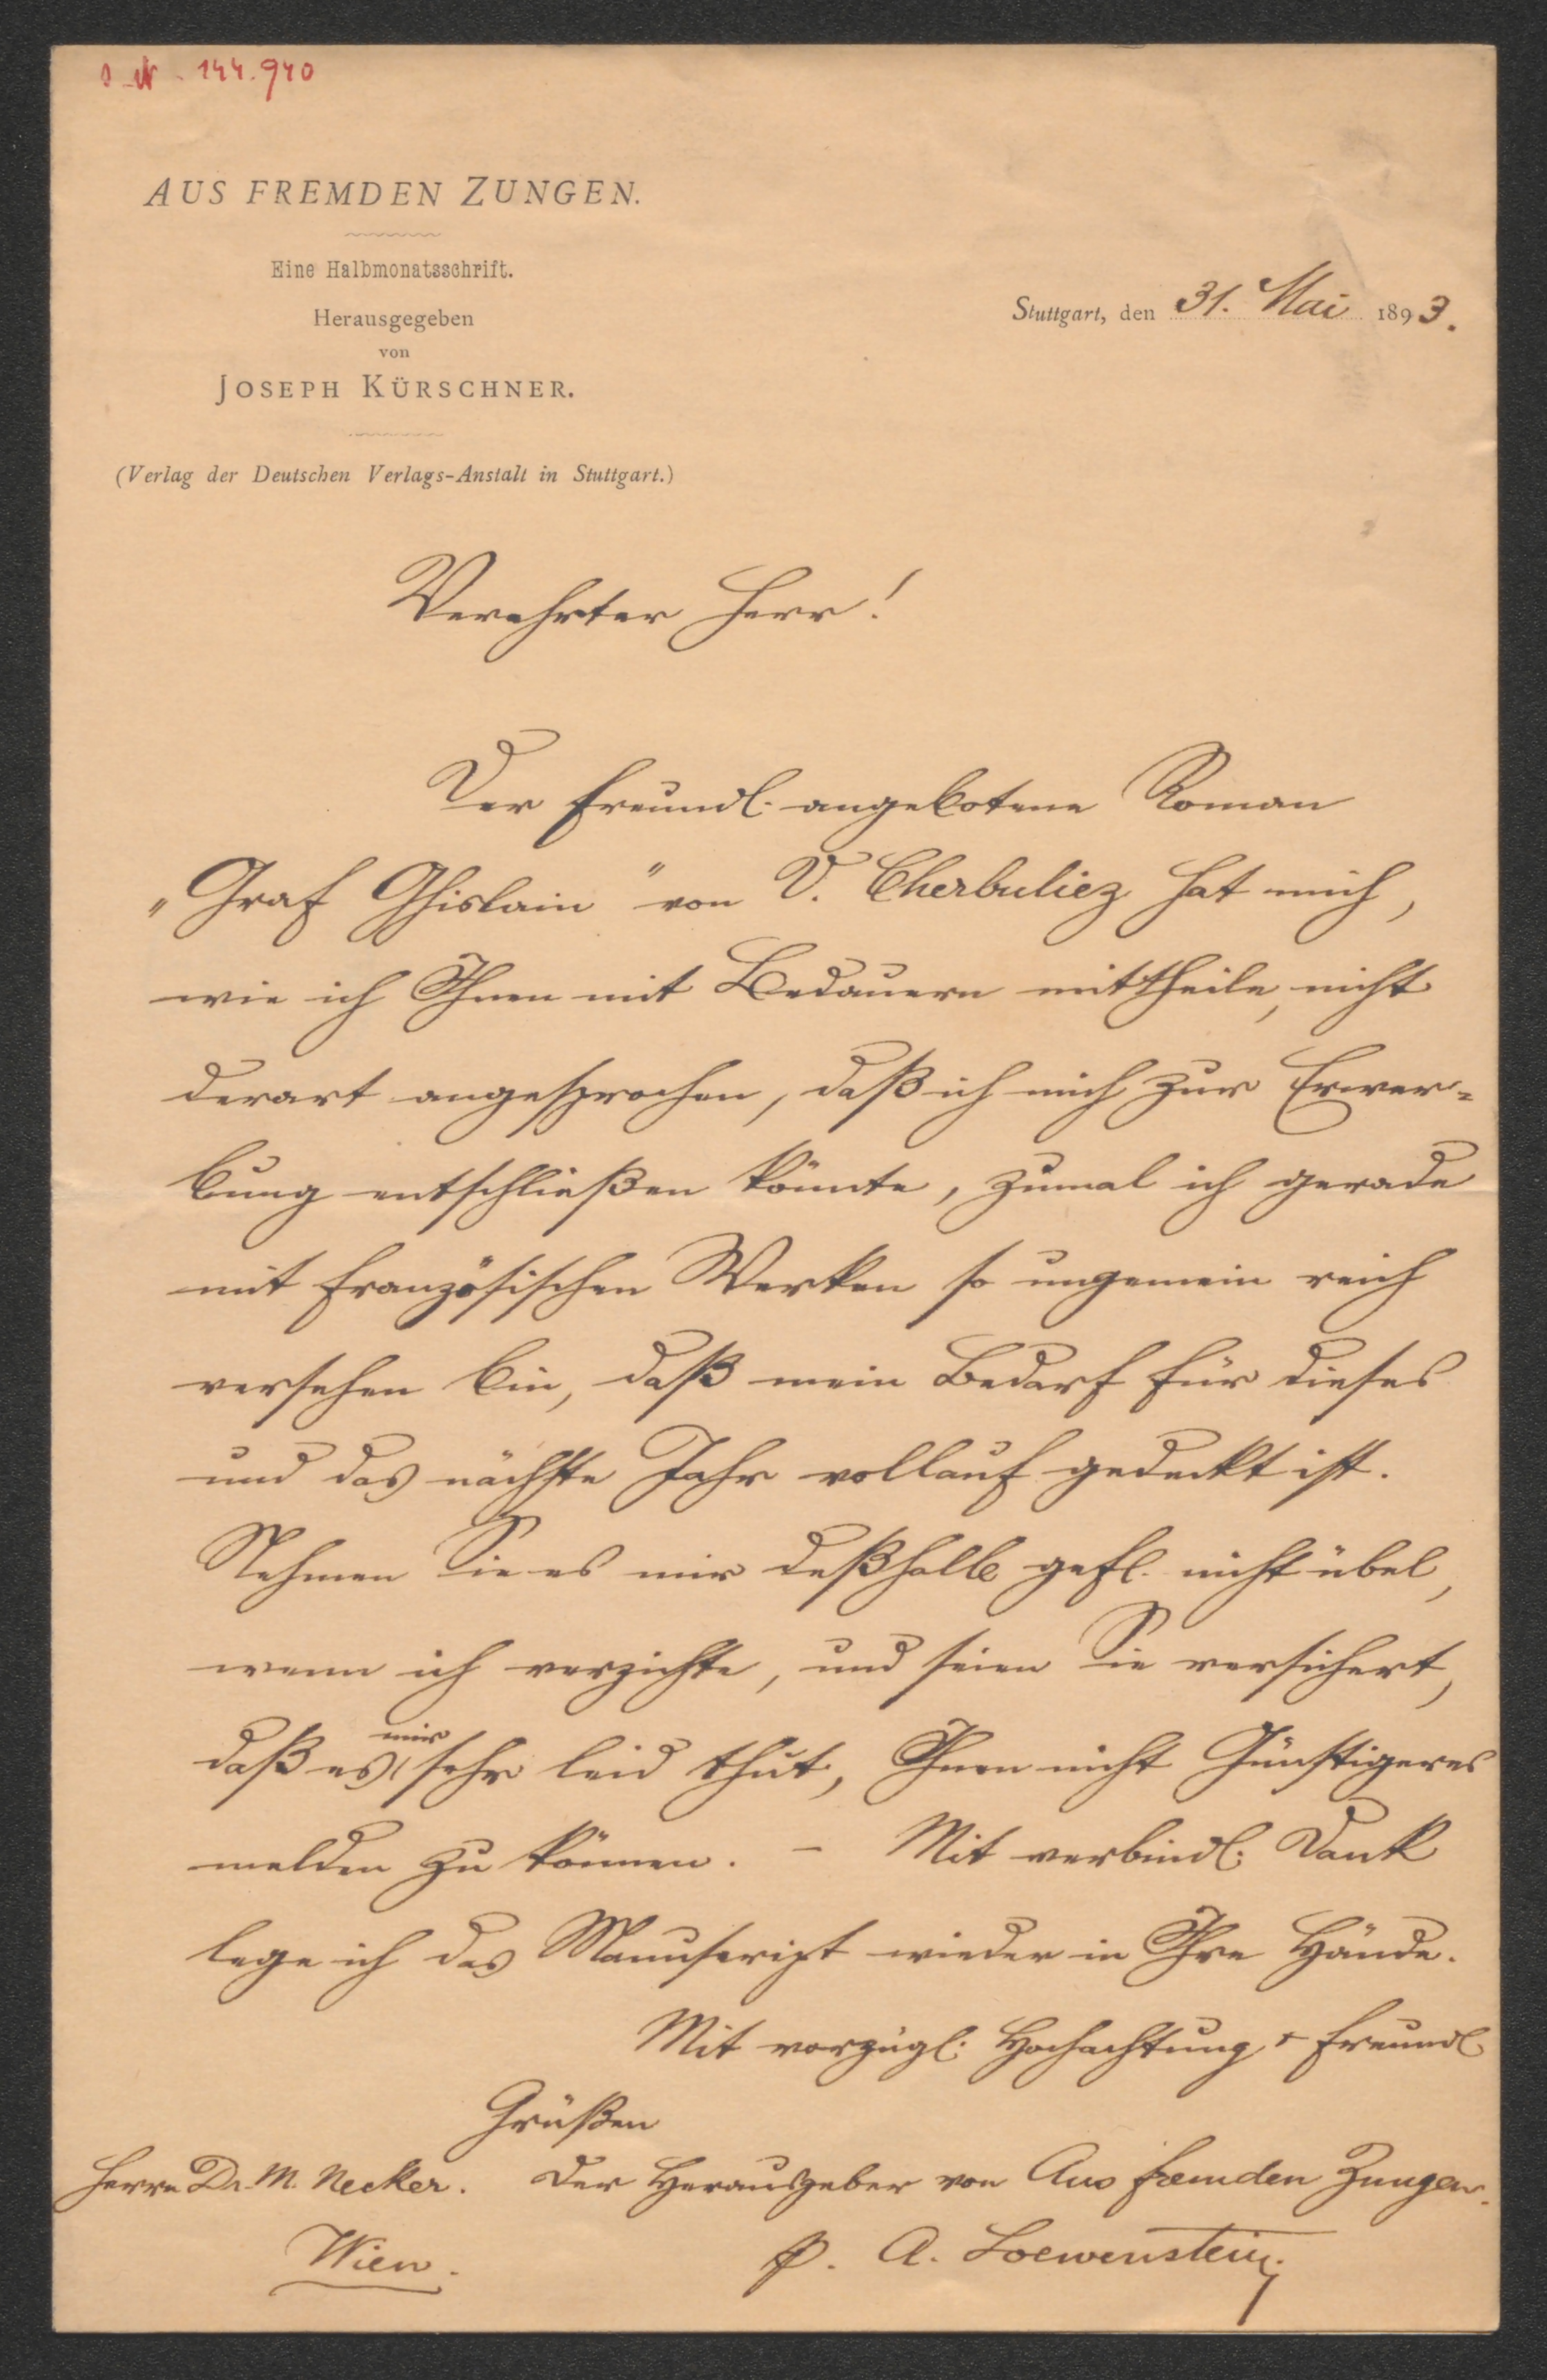 144.940
AUS FREMDEN ZUNGEN.
Eine Halbmonatsschrift.
Herausgegeben
von
JOSEPH KÜRSCHNER.
(Verlag der Deutschen Verlags-Anstalt in Stuttgart.)
Stuttgart, den 31. Mai 1893.
Verehrter Herr!
Der freundl. angebotene Roman
„Graf Ghislain" von V. Cherbuliez hat mich,
wie ich Ihnen mit Bedauern mittheile, nicht
derart angesprochen, daß ich mich zur Erwer-
bung entschließen könnte, zumal ich gerade
mit französischen Werken so ungemein reich
versehen bin, daß mein Bedarf für dieses
und das nächste Jahr vollauf gedeckt ist.
Nehmen Sie es mir deßhalb gefl. nicht übel,
wenn ich verzichte, und seien Sie versichert,
daß es mir sehr leid thut, Ihnen nicht Günstigeres
melden zu können. – Mit verbindl. Dank
lege ich das Manuscript wieder in Ihre Hände.
Mit vorzügl. Hochachtung + freundl.
Grüßen
Herrn Dr. M. Necker. Der Herausgeber von Aus fremden Zungen.
Wien. p. A. Loewenstein.